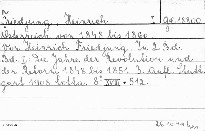 Friedjung, Heinrich I Gd. 18200
Österreich von 1848 bis 1860
von Heinrich Friedjung. In 2 Bd.
Bd. I. Die Jahre der Revolution und
der Reform 1848 bis 1851. 3. Aufl. Stutt-
gart 1908 Cotta. 8° XVI + 512.
26.10.1940